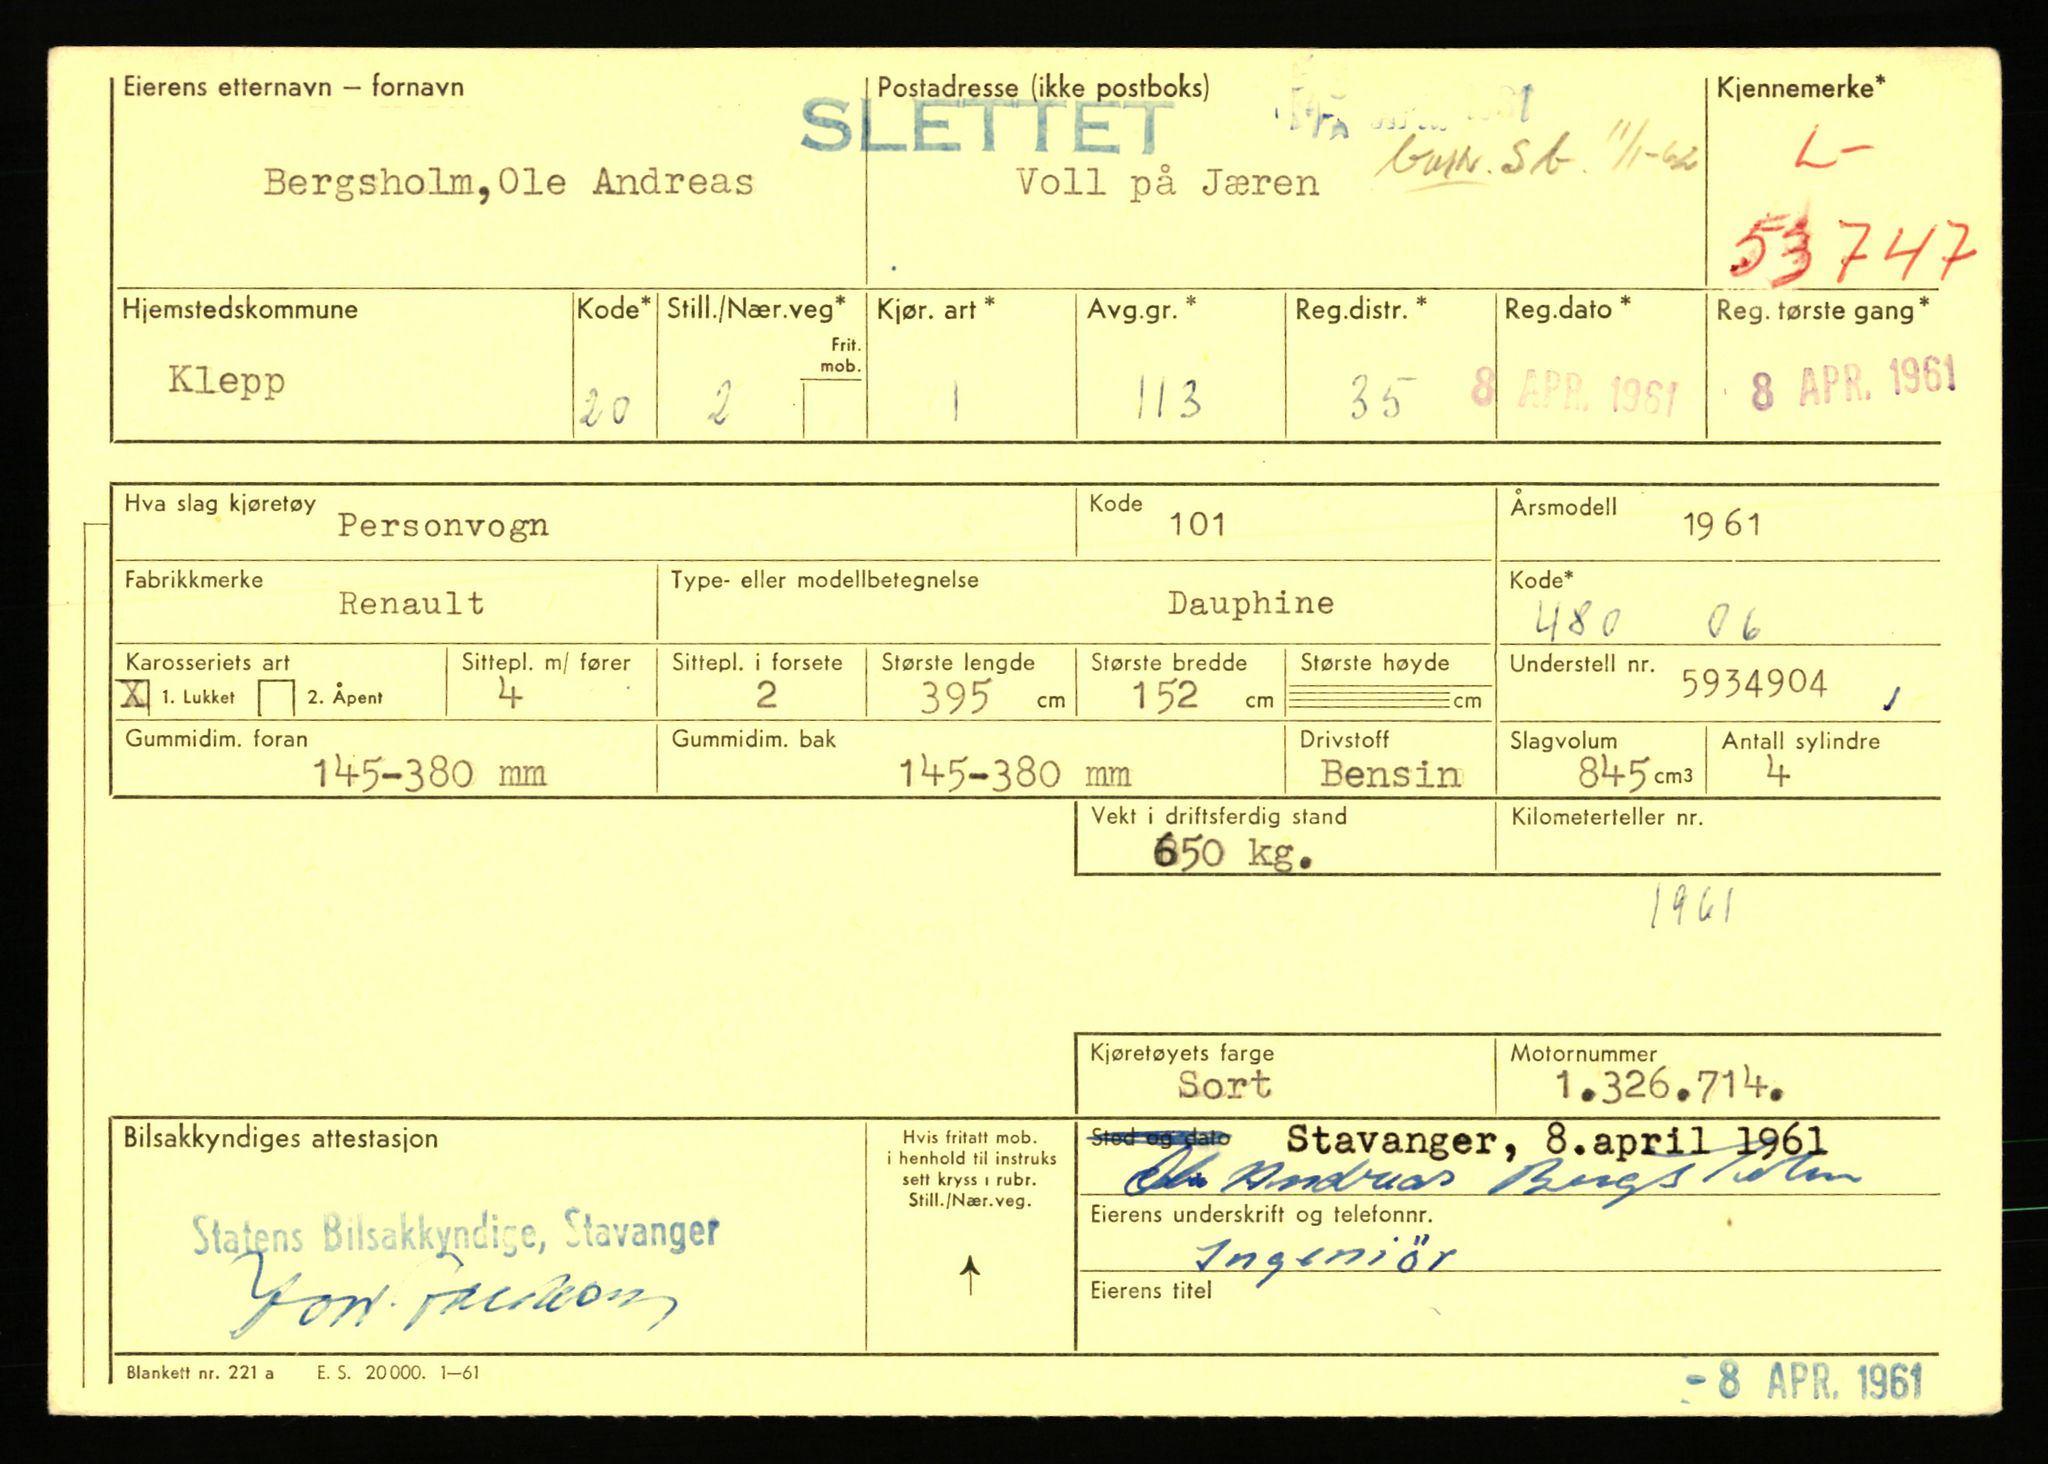 Eierens etternavn – fornavn
Postadresse (ikke postboks)
Kjennemerke*
SLETTET
1961
Bergsholm, Ole Andreas
Voll på Jæren
S b. 11/1-62
L-
53747
Hjemstedskommune
Kode*
Still./Nær.veg*
Frit. mob.
Kjør. art *
Avg.gr. *
Reg.distr. *
Reg.dato *
Reg. første gang*
Klepp
20
2
1
113
35
8 APR. 1961
8 APR. 1961
Hva slag kjøretøy
Personvogn
Kode
101
Årsmodell
1961
Fabrikkmerke
Renault
Type- eller modellbetegnelse
Dauphine
Kode*
480 06
Karosseriets art
X 1. Lukket 2. Åpent
Sittepl. m/ fører
4
Sittepl. i forsete
2
Største lengde
395 cm
Største bredde
152 cm
Største høyde
cm
Understell nr.
5934904
Gummidim. foran
145-380 mm
Gummidim. bak
145-380 mm
Drivstoff
Bensin
Slagvolum
845 cm3
Antall sylindre
4
Vekt i driftsferdig stand
650 kg.
Kilometerteller nr.
1961
Kjøretøyets farge
Sort
Motornummer
1.326.714.
Bilsakkyndiges attestasjon
Hvis fritatt mob.
i henhold til instruks
sett kryss i rubr.
Still./Nær.veg.
Sted og dato
Stavanger, 8.april 1961
Ole Andreas Bergsholm
Eierens underskrift og telefonnr.
Statens Bilsakkyndige, Stavanger
Ingeniör
Eierens titel
Blankett nr. 221 a E. S. 20000. 1–61
- 8 APR. 1961